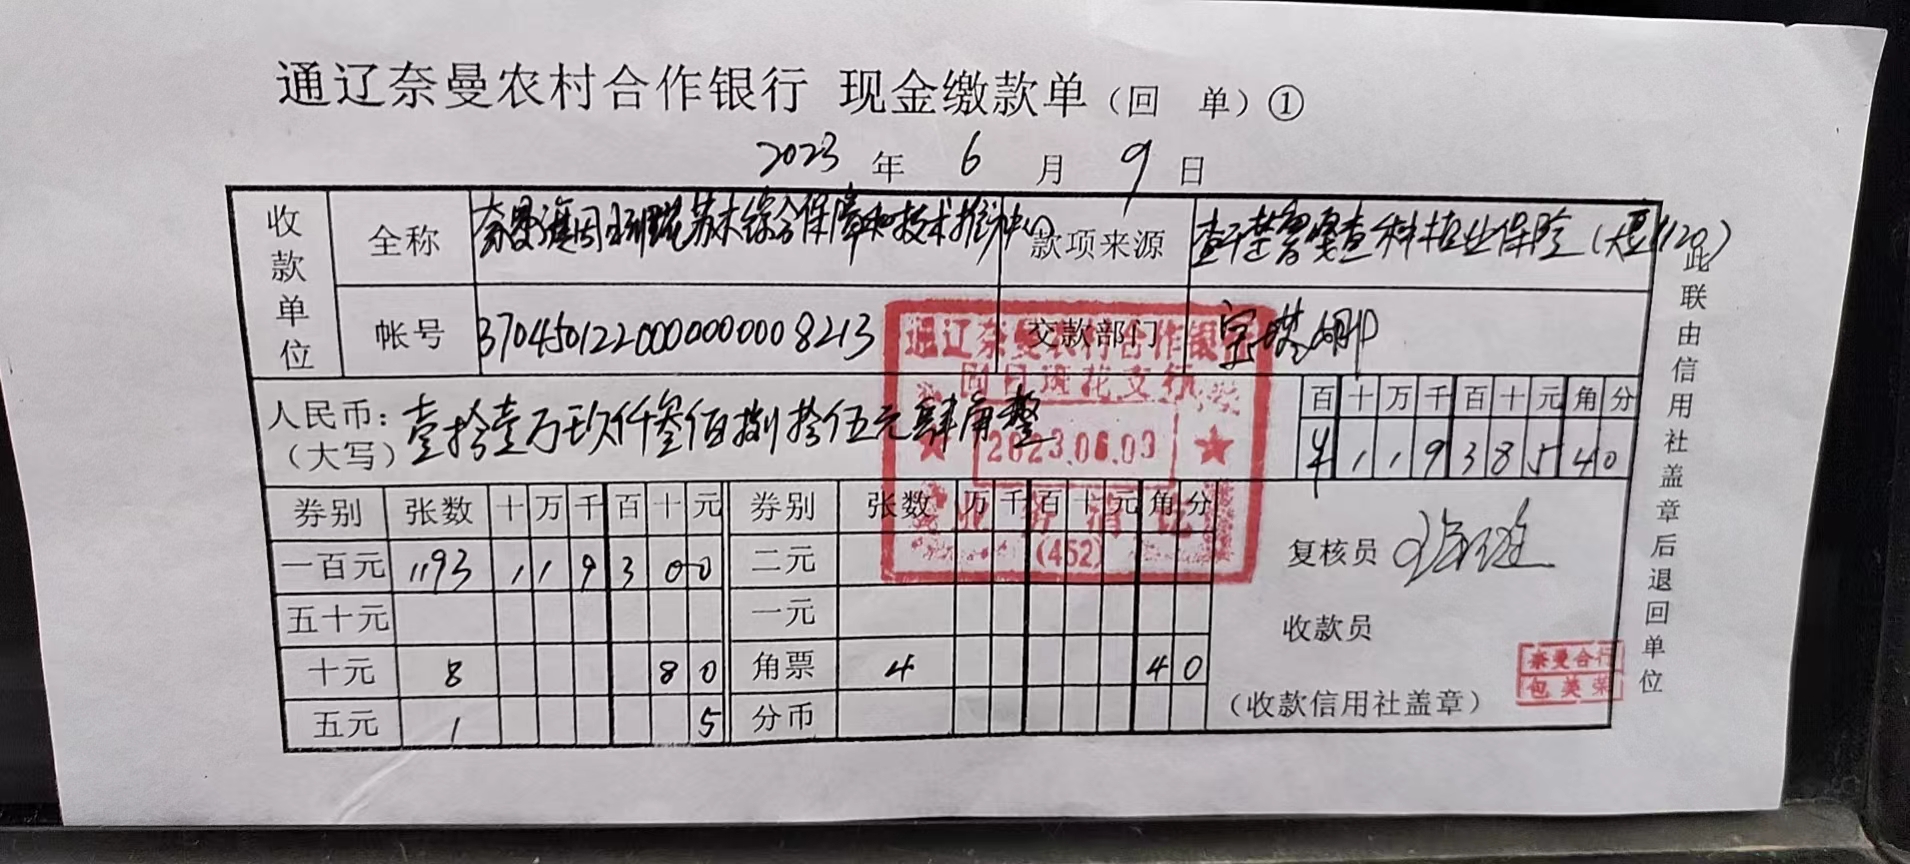 通辽奈曼农村合作银行 现金缴款单（回 单）①
2023 年 6 月 9 日
收款单位
全称 奈曼旗固日班花苏木综合保障和技术推广中心
款项来源
保险
帐号 3704501220000000008213
交款部门
人民币：（大写） 壹拾壹万玖仟叁佰捌拾伍元肆角整
百 十 万 千 百 十 元 角 分
¥ 1 1 9 3 8 5 4 0
券别 张数 十 万 千 百 十 元 券别 张数 万 千 百 十 元 角 分
一百元 1193 1 1 9 3 0 0 二元
五十元 一元
十元 8 8 0 角票 4 4 0
五元 1 5 分币
复核员
收款员
（收款信用社盖章）
此联由信用社盖章后退回单位
通辽奈曼农村合作银行
固日班花支行
2023.06.09
(452)
奈曼合行
包美荣